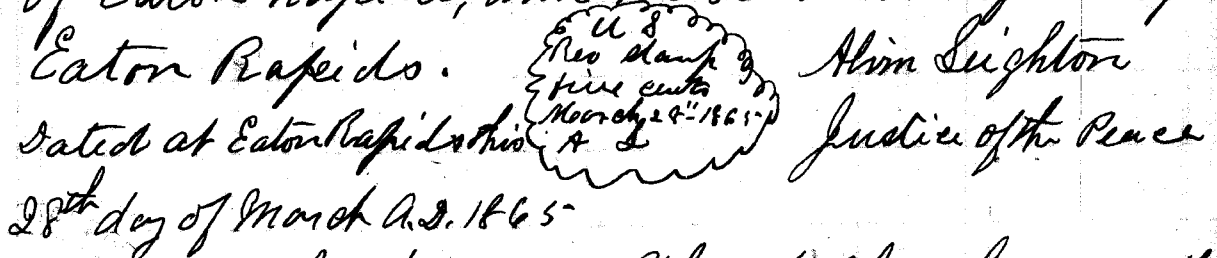 Eaton Rapids.
U S
Rev stamp
five cents
March 28" 1865
A L
Alvin Leighton
Dated at Eaton Rapids this
Justice of the Peace
28th day of March A.D. 1865